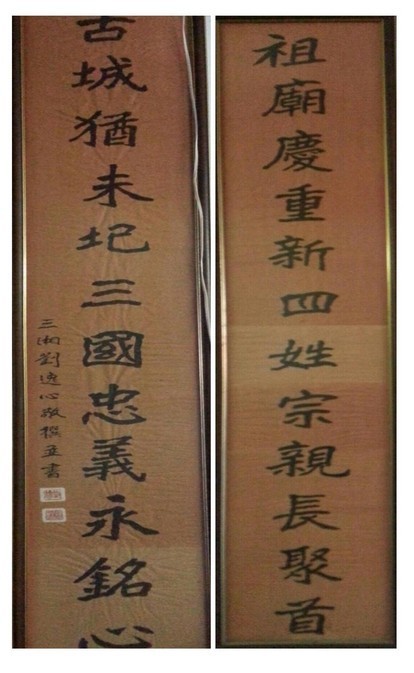 祖廟慶重新四姓宗親長聚首
古城猶未圮三國忠義永銘心
三湘劉逸心敬撰並書